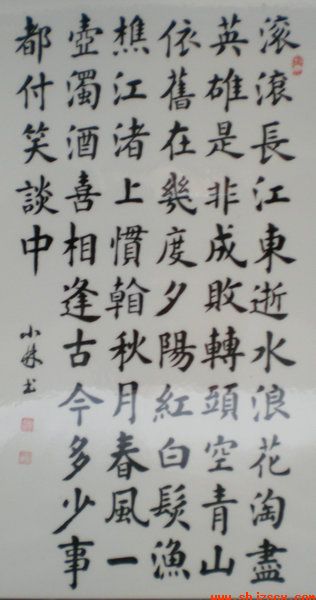 滚滚長江東逝水浪花淘盡
英雄是非成敗轉頭空青山
依舊在幾度夕陽紅白髮漁
樵江渚上慣翰秋月春風一
壺濁酒喜相逢古今多少事
都付笑談中
小 书